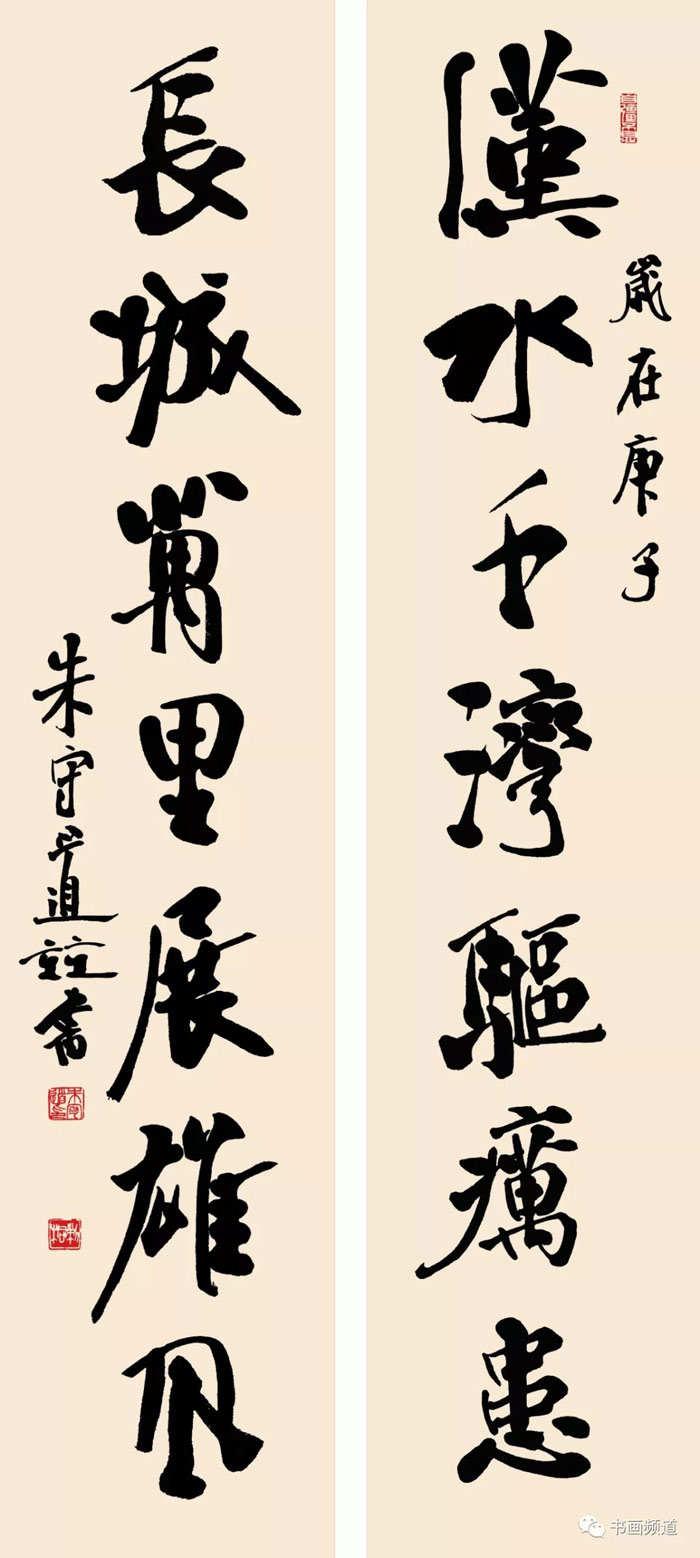 歲在庚子
漢水千灣驅癘患
長城萬里展雄風
朱守道竝書
书画频道